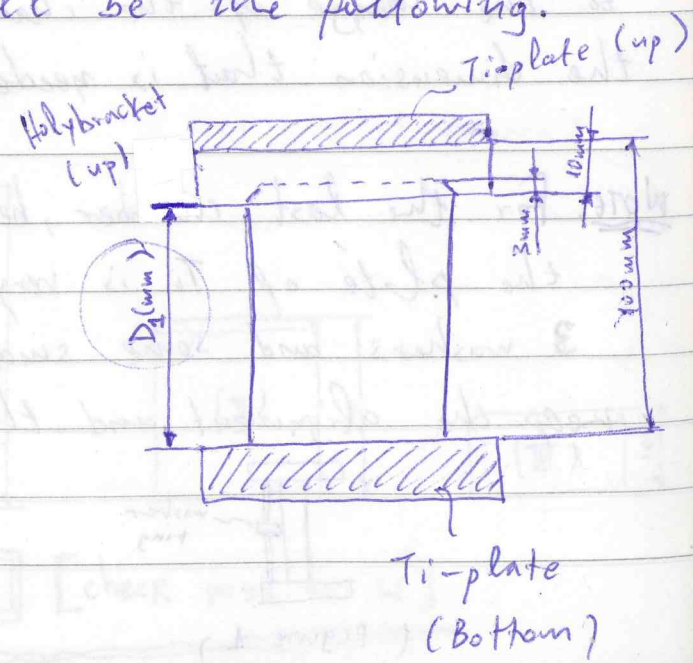 be the following.
Ti-plate (up)
Holybracket
(up)
10mm
3mm
D1(mm)
400mm
Ti-plate
(Bottom)